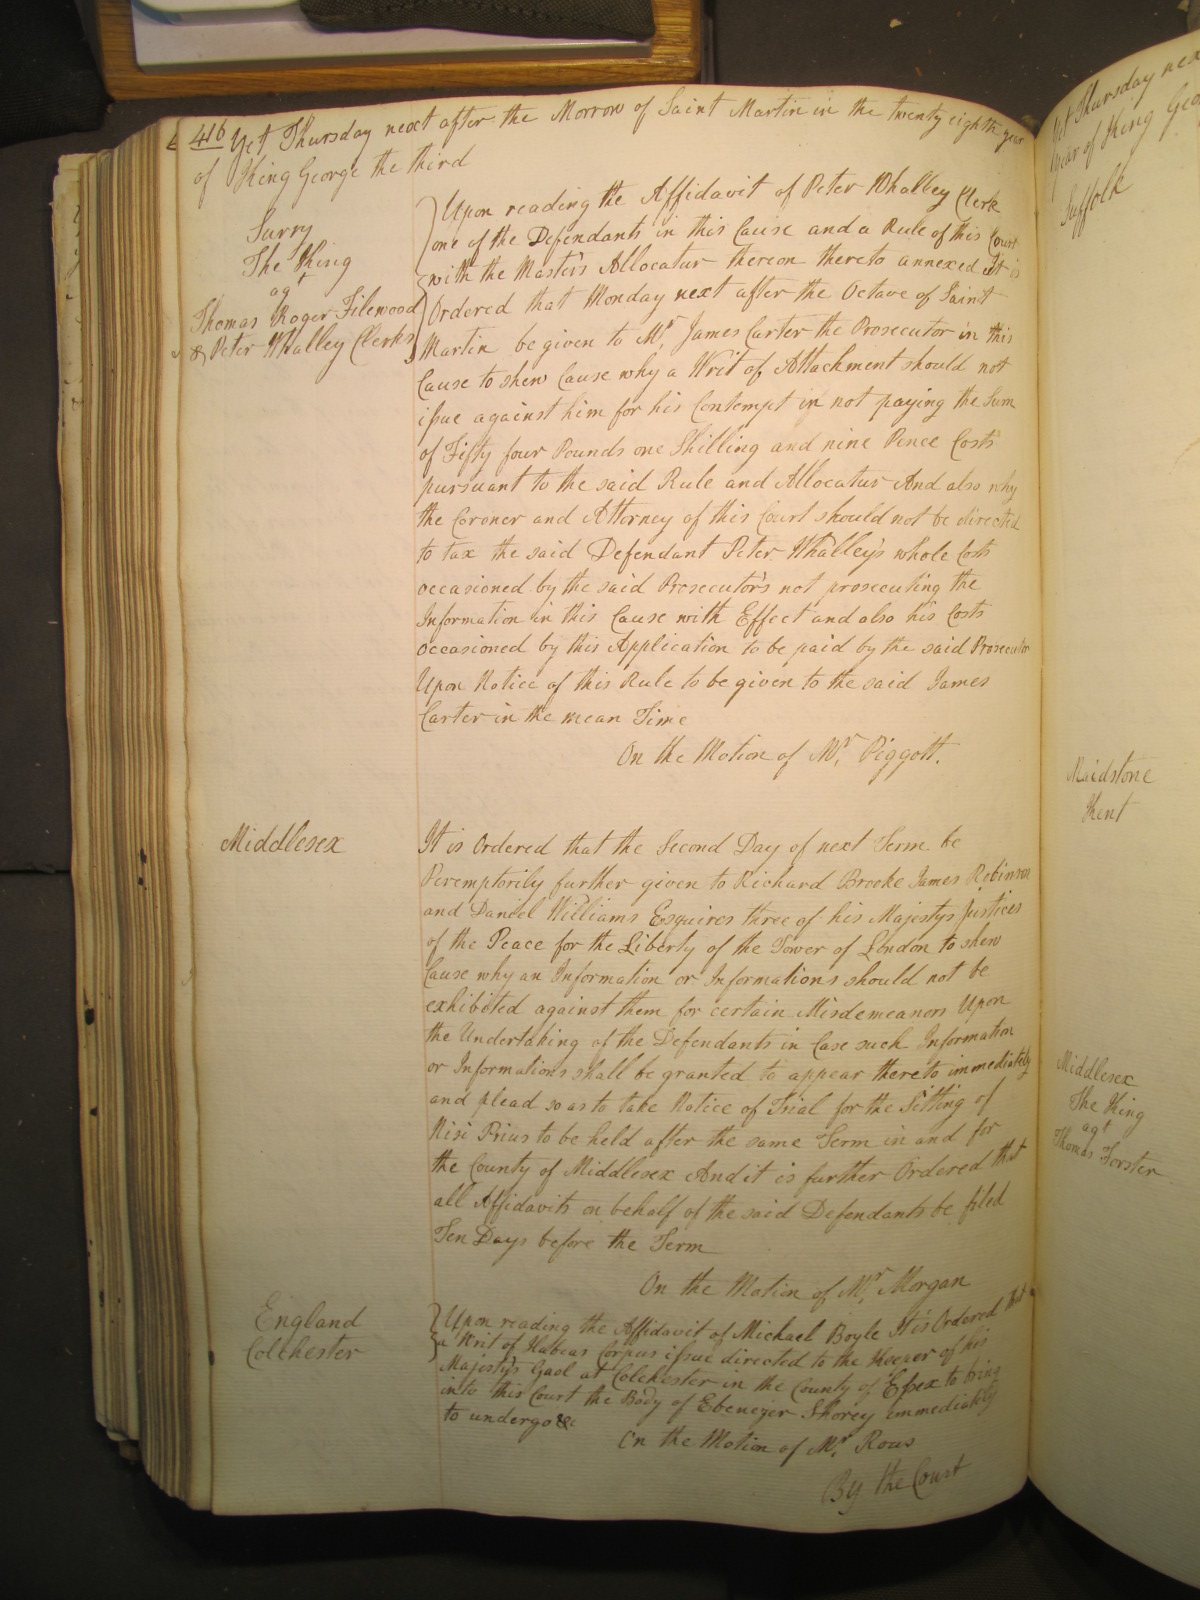 416 Yet Thursday next after the Morrow of Saint Martin in the twenty eighth year
of King George the third
Surry
The King
agt
Thomas Roger Filewood
& Peter Whalley Clerks
Upon reading the Affidavit of Peter Whalley Clerk
one of the Defendants in this Cause and a Rule of this Court
with the Master's Allocatur thereon thereto annexed It is
Ordered that Monday next after the Octave of Saint
Martin be given to Mr. James Carter the Prosecutor in this
Cause to shew Cause why a Writ of Attachment should not
issue against him for his Contempt in not paying the Sum
of Fifty four Pounds one Shilling and nine Pence Costs
pursuant to the said Rule and Allocatur And also why
the Coroner and Attorney of this Court should not be directed
to tax the said Defendant Peter Whalley's whole Costs
occasioned by the said Prosecutor's not prosecuting the
Information in this Cause with Effect and also his Costs
occasioned by this Application to be paid by the said Prosecutor
Upon Notice of this Rule to be given to the said James
Carter in the mean Time
On the Motion of Mr. Piggott.
Middlesex
It is Ordered that the Second Day of next Term be
Peremptorily further given to Richard Brooke James Robinson
and Daniel Williams Esquires three of his Majestys Justices
of the Peace for the Liberty of the Tower of London to shew
Cause why an Information or Informations should not be
exhibited against them for certain Misdemeanors Upon
the Undertaking of the Defendants in Case such Information
or Informations shall be granted to appear thereto immediately
and plead so as to take Notice of Trial for the Sitting of
Nisi Prius to be held after the same Term in and for
the County of Middlesex And it is further Ordered that
all Affidavits on behalf of the said Defendants be filed
Ten Days before the Term
On the Motion of Mr. Morgan
England
Colchester
Upon reading the Affidavit of Michael Boyle It is Ordered that
a Writ of Habeas Corpus issue directed to the Keeper of his
Majesty's Gaol at Colchester in the County of Essex to bring
into this Court the Body of Ebenezer Shorey immediately
to undergo &c
On the Motion of Mr. Rous
By the Court
Yet Thursday nex
year of King Geo
Suffolk
Maidstone
Kent
Middlesex
The King
agt
Thomas Forster